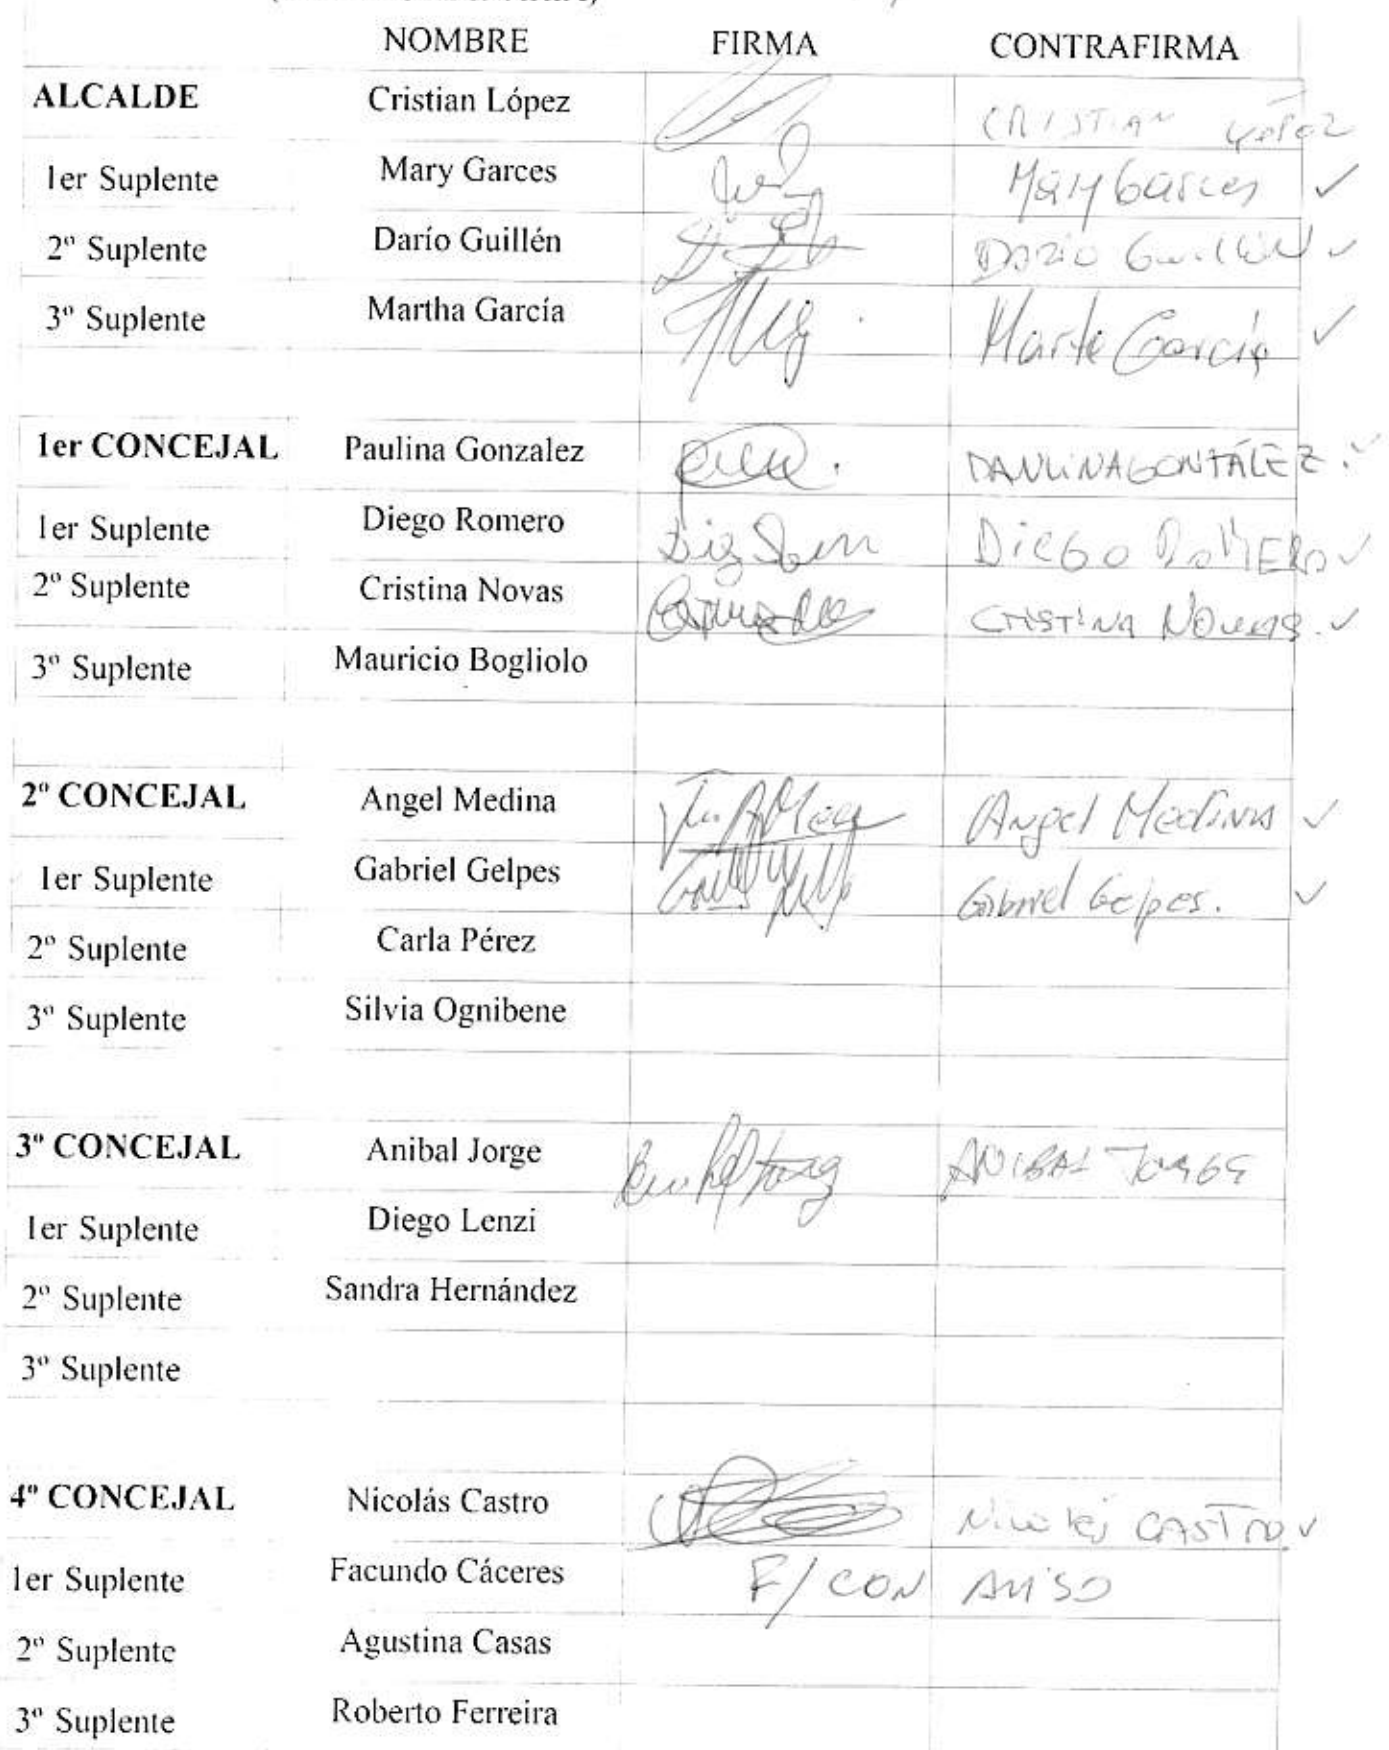 NOMBRE FIRMA CONTRAFIRMA
ALCALDE Cristian López CRISTIAN López
1er Suplente Mary Garces Mary Garces ✓
2º Suplente Darío Guillén Darío Guillén ✓
3º Suplente Martha García Marta García ✓
1er CONCEJAL Paulina Gonzalez PAULINA GONZÁLEZ ✓
1er Suplente Diego Romero DIEGO ROMERO ✓
2º Suplente Cristina Novas CRISTINA NOVAS. ✓
3º Suplente Mauricio Bogliolo
2º CONCEJAL Angel Medina Angel Medina ✓
1er Suplente Gabriel Gelpes Gabriel Gelpes. ✓
2º Suplente Carla Pérez
3º Suplente Silvia Ognibene
3º CONCEJAL Anibal Jorge ANIBAL JORGE
1er Suplente Diego Lenzi
2º Suplente Sandra Hernández
3º Suplente
4º CONCEJAL Nicolás Castro Nicolás CASTRO ✓
1er Suplente Facundo Cáceres F/ CON AVISO
2º Suplente Agustina Casas
3º Suplente Roberto Ferreira